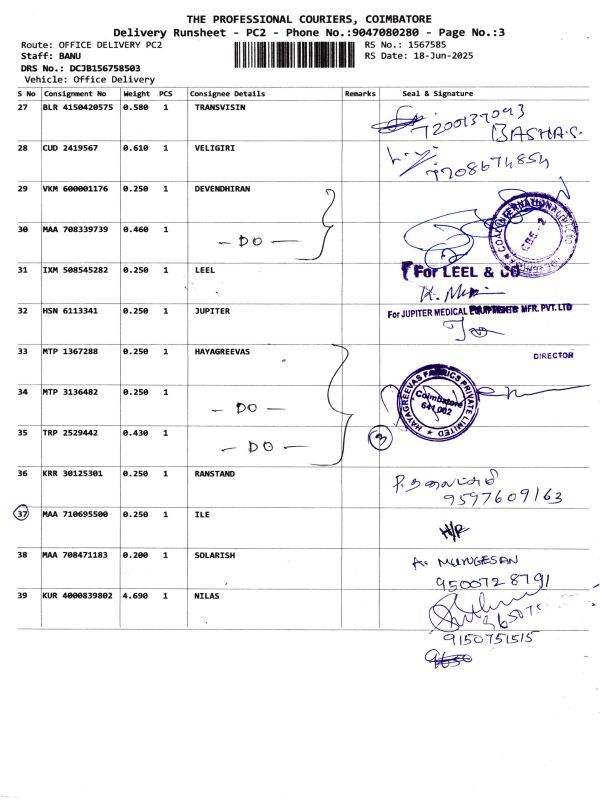 THE PROFESSIONAL COURIERS, COIMBATORE
Delivery Runsheet - PC2 - Phone No.:9047080280 - Page No.:3
Route: OFFICE DELIVERY PC2 RS No.: 1567585
Staff: BANU RS Date: 18-Jun-2025
DRS No.: DCJB156758503
Vehicle: Office Delivery
S No Consignment No Weight PCS Consignee Details Remarks Seal & Signature
27 BLR 4150420575 0.580 1 TRANSVISIN 7200137093
BASHA.S.
28 CUD 2419567 0.610 1 VELIGIRI
7708674854
29 VKM 600001176 0.250 1 DEVENDHIRAN
30 MAA 708339739 0.460 1
- DO -
C.B.E. - 2
31 IXM 508545282 0.250 1 LEEL For LEEL & CO
32 HSN 6113341 0.250 1 JUPITER For JUPITER MEDICAL EQUIPMENTS MFR. PVT. LTD
33 MTP 1367288 0.250 1 HAYAGREEVAS DIRECTOR
34 MTP 3136482 0.250 1
- DO -
HAYAGREEVAS FABRICS PRIVATE LIMITED
Coimbatore
641 002
35 TRP 2529442 0.430 1 3
- DO -
36 KRR 30125301 0.250 1 RANSTAND
9597609163
37 MAA 710695500 0.250 1 ILE
H/R
38 MAA 708471183 0.200 1 SOLARISH A. MURUGESAN
9500728791
39 KUR 4000839802 4.690 1 NILAS
9150751515